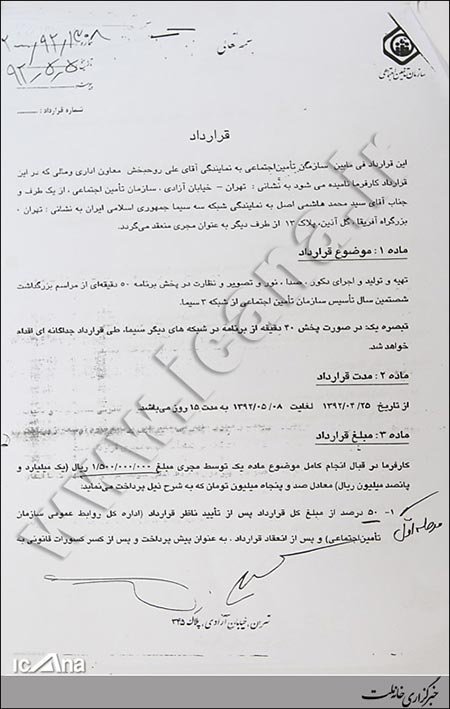 بسمه تعالی
سازمان تأمین اجتماعی
شماره قرارداد:
قرارداد
این قرارداد فی مابین سازمان تأمین اجتماعی به نمایندگی آقای علی روحبخش معاون اداری ومالی که در این
قرارداد کارفرما نامیده می شود به نشانی: تهران - خیابان آزادی، سازمان تأمین اجتماعی، از یک طرف و
جناب آقای سید محمد هاشمی اصل به نمایندگی شبکه سه سیما جمهوری اسلامی ایران به نشانی: تهران،
بزرگراه آفریقا، گل آذین، پلاک ۱۳ از طرف دیگر به عنوان مجری منعقد می‌گردد.
ماده ۱: موضوع قرارداد
تهیه و تولید و اجرای دکور، صدا، نور و تصویر و نظارت در پخش برنامه ۵۰ دقیقه‌ای از مراسم بزرگداشت
شصتمین سال تأسیس سازمان تأمین اجتماعی از شبکه ۳ سیما.
تبصره یک: در صورت پخش ۳۰ دقیقه از برنامه در شبکه های دیگر سیما، طی قرارداد جداگانه ای اقدام
خواهد شد.
ماده ۲: مدت قرارداد
از تاریخ ۱۳۹۲/۰۴/۲۵ لغایت ۱۳۹۲/۰۵/۰۸ به مدت ۱۵ روز می‌باشد.
ماده ۳: مبلغ قرارداد
کارفرما در قبال انجام کامل موضوع ماده یک توسط مجری مبلغ ۱/۵۰۰/۰۰۰/۰۰۰ ریال (یک میلیارد و
پانصد میلیون ریال) معادل صد و پنجاه میلیون تومان که به شرح ذیل پرداخت می‌نماید:
۱- ۵۰ درصد از مبلغ کل قرارداد پس از تأیید ناظر قرارداد (اداره کل روابط عمومی سازمان
تأمین اجتماعی) و پس از انعقاد قرارداد، به عنوان پیش پرداخت و پس از کسر کسورات قانونی به
مرحله اول
تهران، خیابان آزادی، پلاک ۳۴۵
www.icana.ir
icana
خبرگزاری خانه ملت